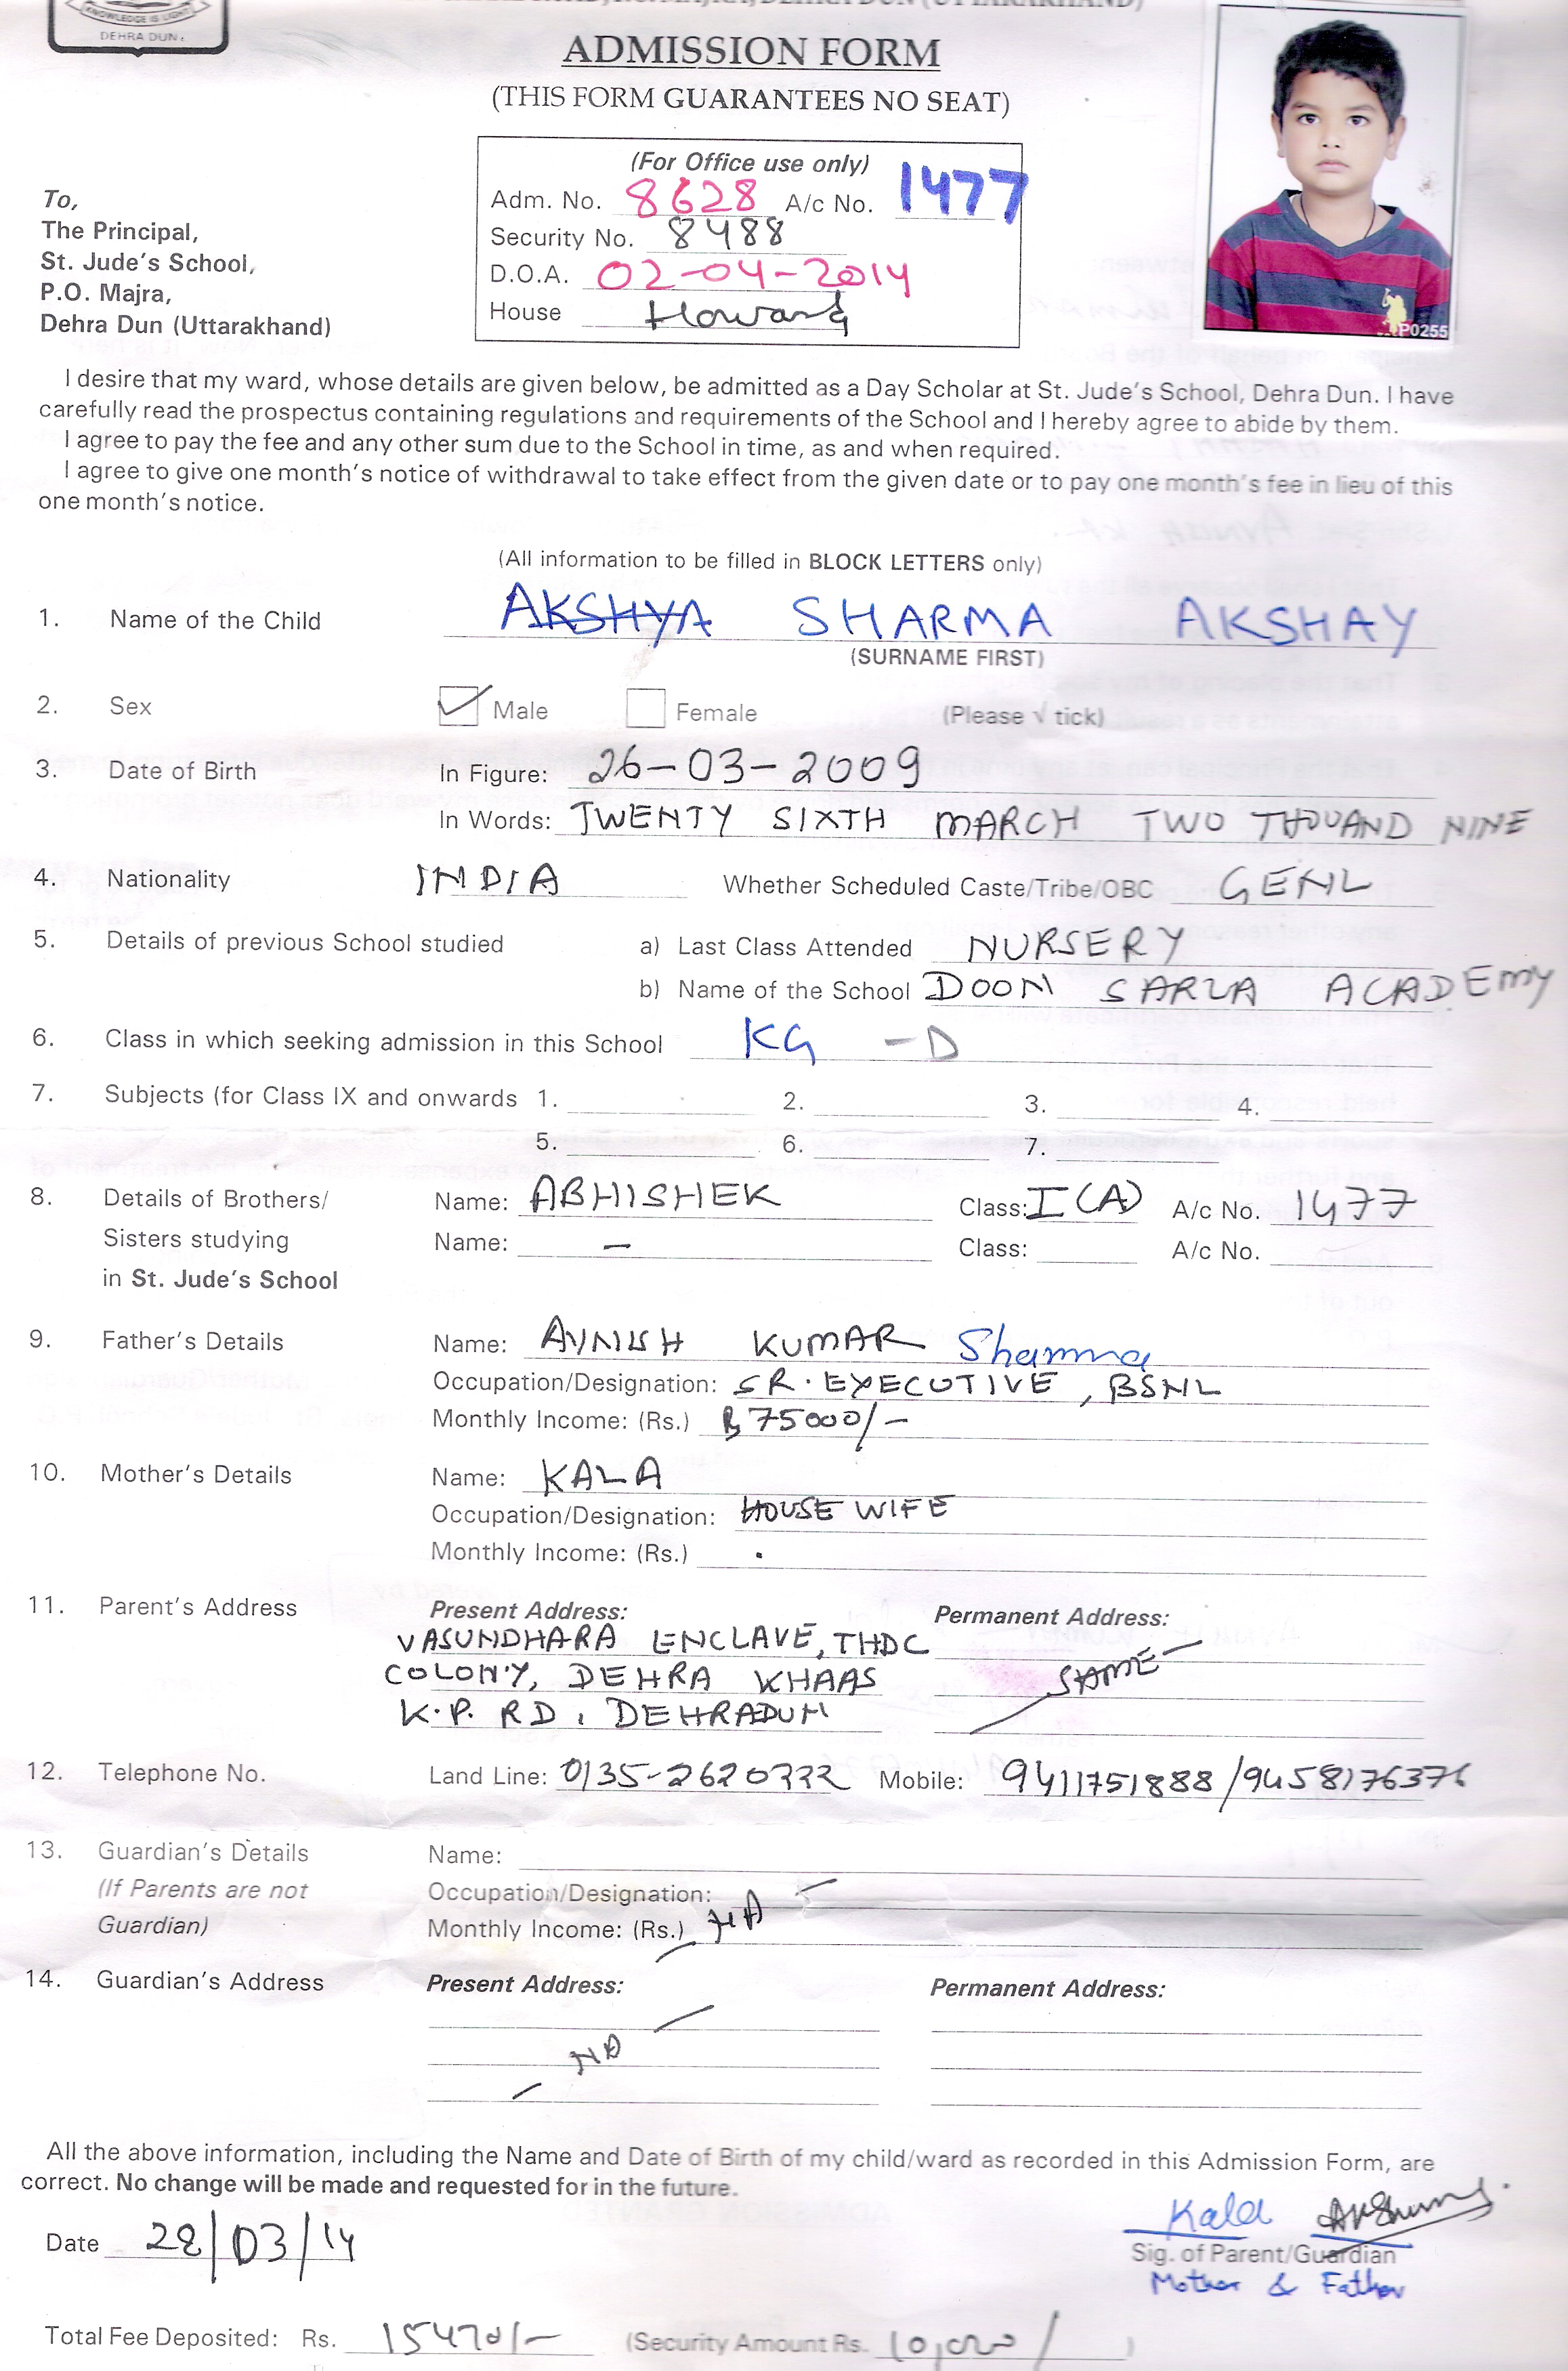 KNOWLEDGE IS LIGHT
DEHRA DUN
ADMISSION FORM
(THIS FORM GUARANTEES NO SEAT)
(For Office use only)
Adm. No. 8628 A/c No. 1477
Security No. 8488
D.O.A. 02-04-2014
House Howard
P0255
To,
The Principal,
St. Jude's School,
P.O. Majra,
Dehra Dun (Uttarakhand)
I desire that my ward, whose details are given below, be admitted as a Day Scholar at St. Jude's School, Dehra Dun. I have
carefully read the prospectus containing regulations and requirements of the School and I hereby agree to abide by them.
I agree to pay the fee and any other sum due to the School in time, as and when required.
I agree to give one month's notice of withdrawal to take effect from the given date or to pay one month's fee in lieu of this
one month's notice.
(All information to be filled in BLOCK LETTERS only)
1. Name of the Child AKSHYA SHARMA AKSHAY
(SURNAME FIRST)
2. Sex Male Female (Please √ tick)
3. Date of Birth In Figure: 26-03-2009
In Words: TWENTY SIXTH MARCH TWO THOUAND NINE
4. Nationality INDIA Whether Scheduled Caste/Tribe/OBC GENL
5. Details of previous School studied a) Last Class Attended NURSERY
b) Name of the School DOON SARLA ACADEMY
6. Class in which seeking admission in this School KG - D
7. Subjects (for Class IX and onwards 1. 2. 3. 4.
5. 6. 7.
8. Details of Brothers/ Name: ABHISHEK Class: I (A) A/c No. 1477
Sisters studying Name: — Class: A/c No.
in St. Jude's School
9. Father's Details Name: AVNISH KUMAR Sharma
Occupation/Designation: SR. EXECUTIVE, BSNL
Monthly Income: (Rs.) Rs 75000/-
10. Mother's Details Name: KALA
Occupation/Designation: HOUSE WIFE
Monthly Income: (Rs.) .
11. Parent's Address Present Address: Permanent Address:
VASUNDHARA ENCLAVE, THDC
COLONY, DEHRA KHAAS SAME
K.P. RD, DEHRADUN
12. Telephone No. Land Line: Mobile: 9411751888 /9458176376
13. Guardian's Details Name:
(If Parents are not Occupation/Designation:
Guardian) Monthly Income: (Rs.) NA
14. Guardian's Address Present Address: Permanent Address:
NA
All the above information, including the Name and Date of Birth of my child/ward as recorded in this Admission Form, are
correct. No change will be made and requested for in the future.
Kala
Date 28/03/14
Sig. of Parent/Guardian
Mother & Father
Total Fee Deposited: Rs. 15470/- (Security Amount Rs. 10,000/ )